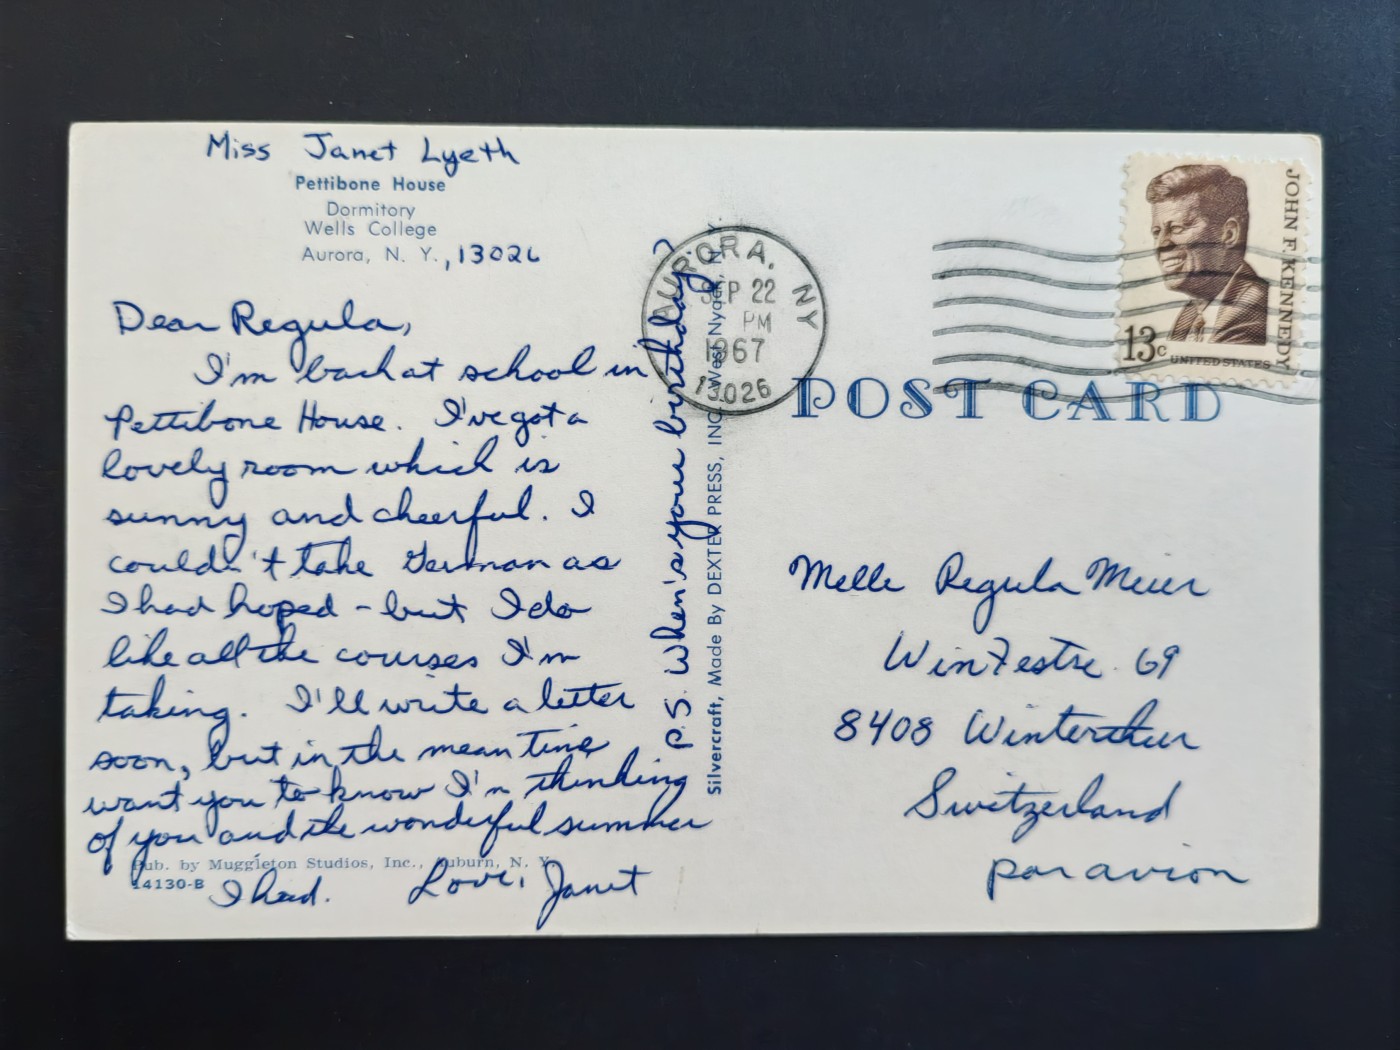 Miss Janet Lyeth
Pettibone House
Dormitory
Wells College
Aurora, N. Y., 13026
Dear Regula,
I'm back at school in
Pettibone House. I've got a
lovely room which is
sunny and cheerful. I
couldn't take German as
I had hoped - but I do
like all the courses I'm
taking. I'll write a letter
soon, but in the mean time
want you to know I'm thinking
of you and the wonderful summer
I had. Love, Janet
Pub. by Muggleton Studios, Inc., Auburn, N. Y.
14130-B
P.S. When's your birthday?
Silvercraft, Made By DEXTER PRESS, INC. West Nyack, N. Y.
AURORA, NY
SEP 22
PM
1967
13026
JOHN F. KENNEDY
13c UNITED STATES
POST CARD
Melle Regula Meier
69
8408 Winterthur
Switzerland
par avion